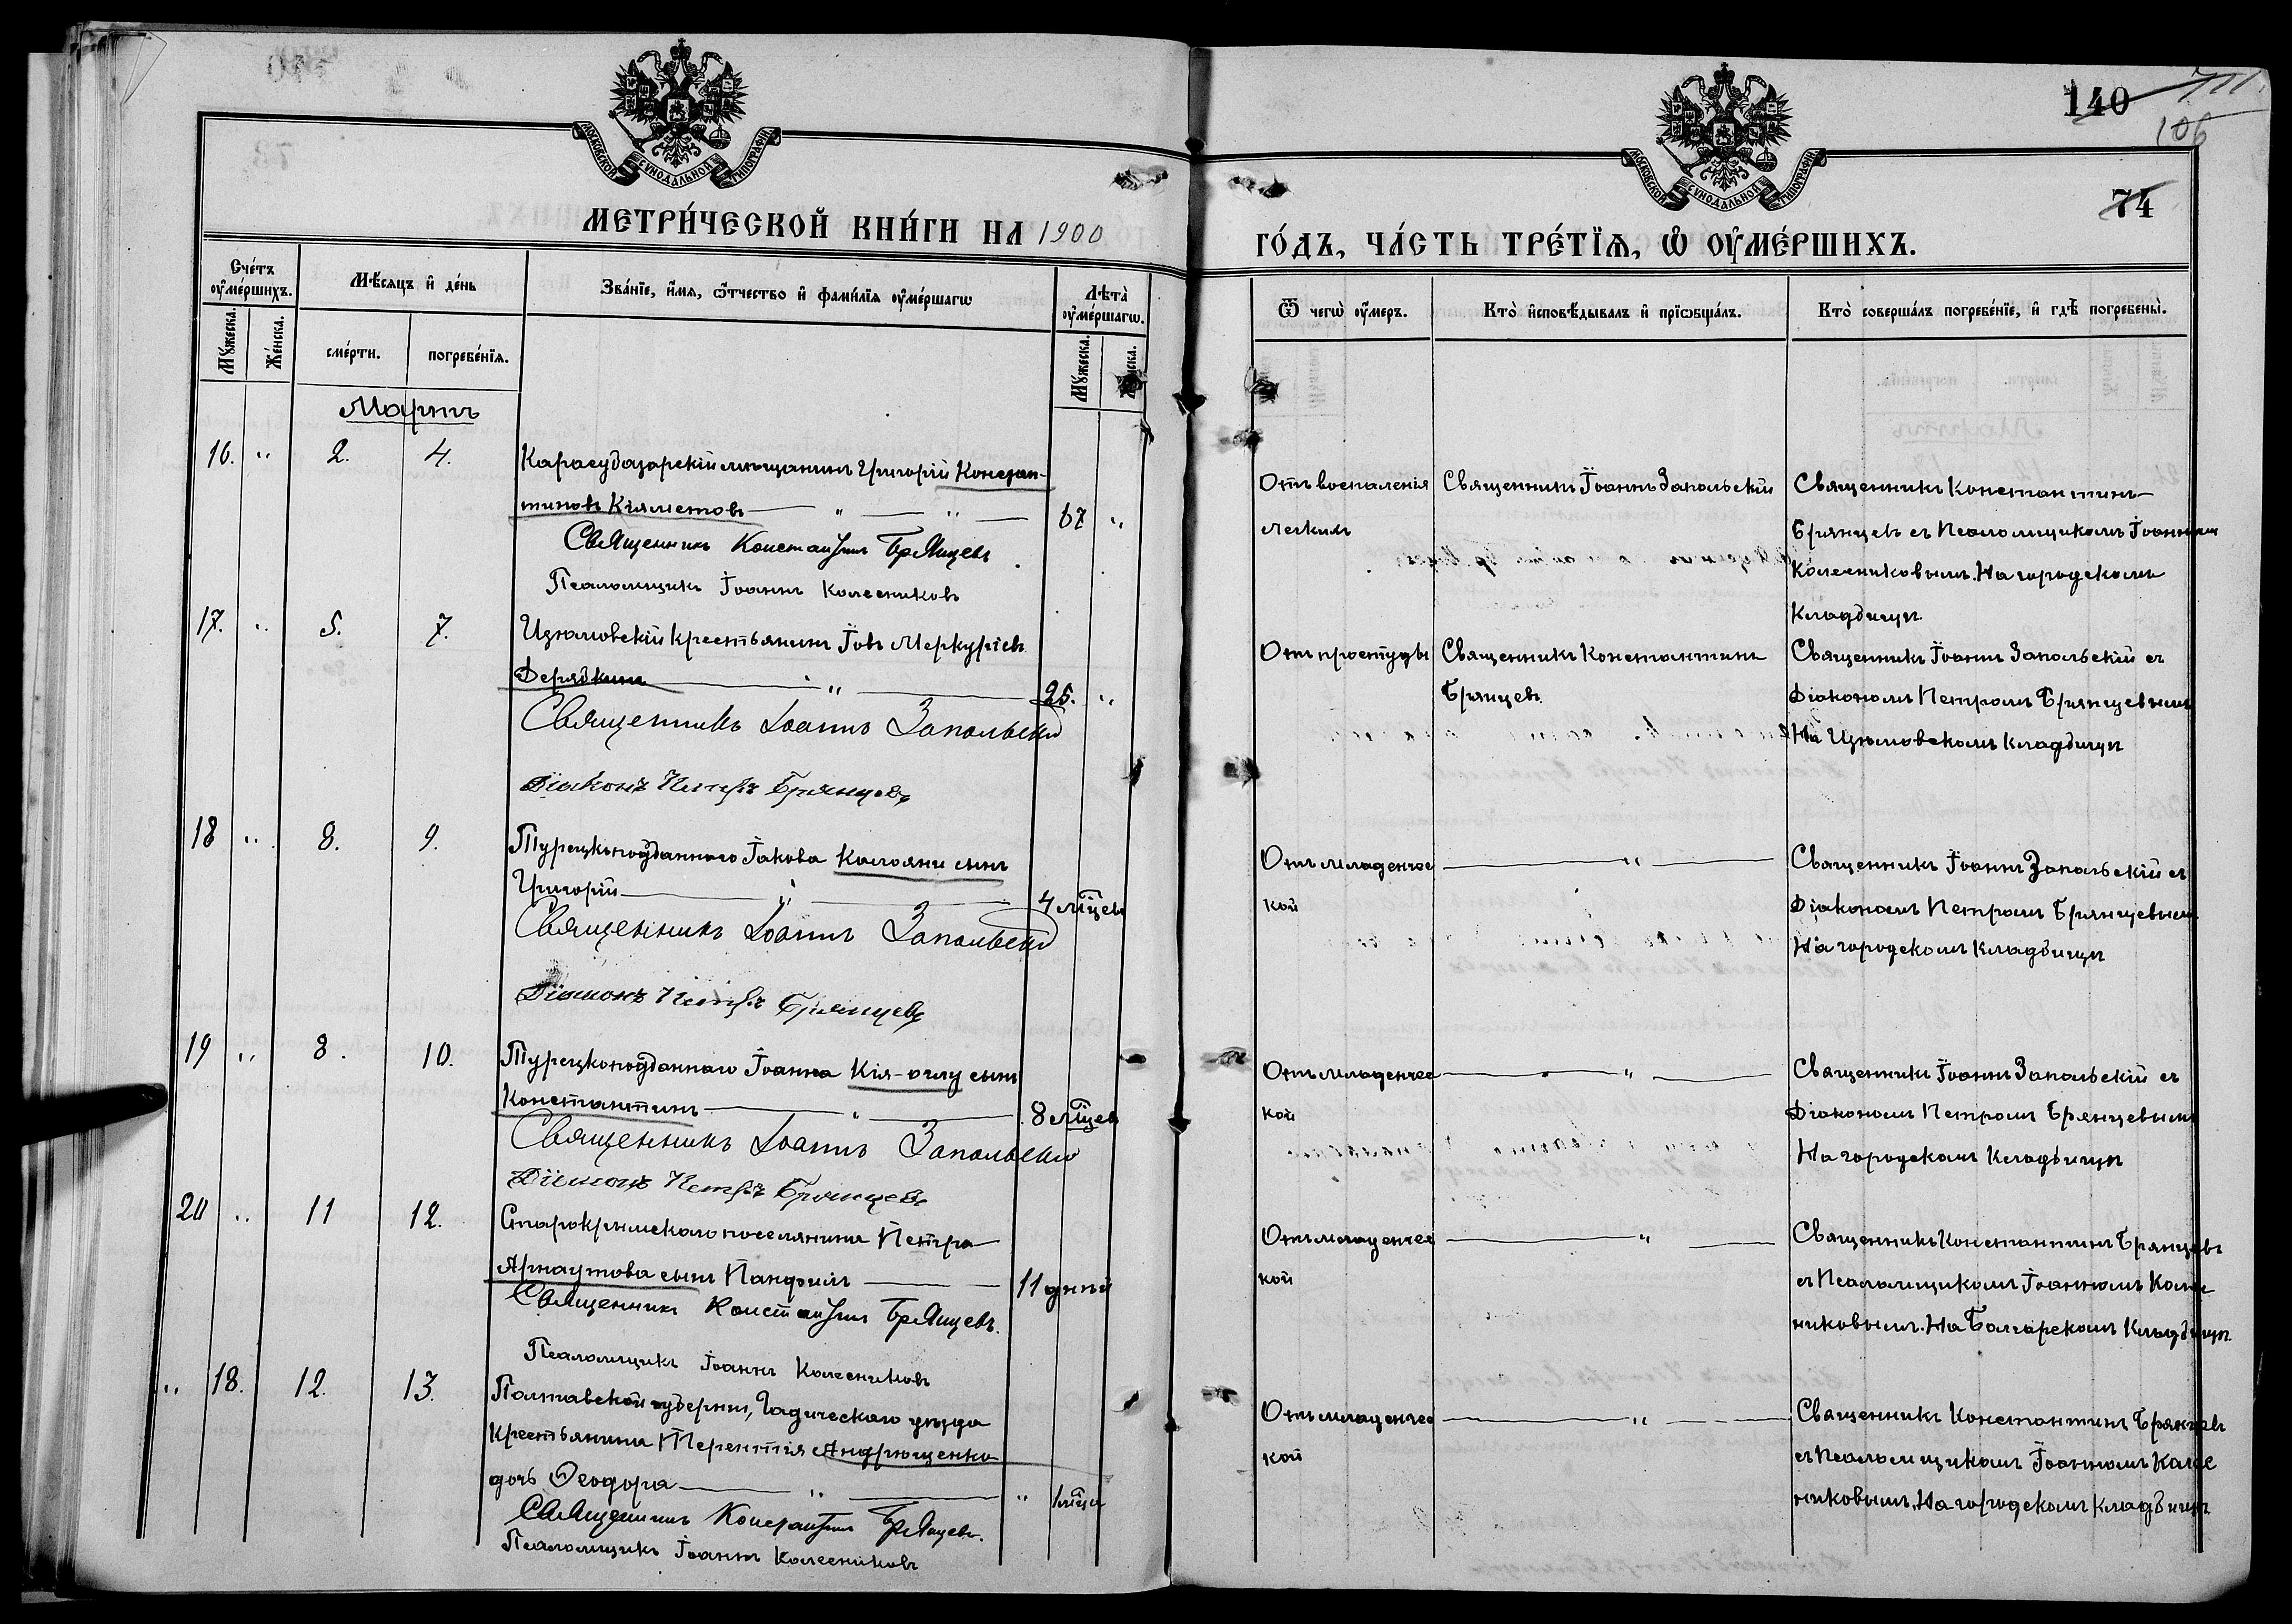 140
711.
106
74
МОСКОВСКОЙ СѴНОДАЛЬНОЙ ТИПОГРАФІИ
МОСКОВСКОЙ СѴНОДАЛЬНОЙ ТИПОГРАФІИ
МЕТРИ́ЧЕСКОЙ КНИ́ГИ НА 1900
ГО́ДЪ, ЧА́СТЬ ТРЕ́ТЇѦ, Ѡ҆ ОУ҆МЕ́РШИХЪ.
Сче́тъ оу҆ме́ршихъ.
Мꙋжеска.
Же́нска.
Мѣ́сяцъ и҆ де́нь
сме́рти.
погребе́нїя.
Зва́нїе, и҆́мя, ѻ҆́тчество и҆ фами́лїя оу҆ме́ршагѡ
Лѣта̀ оу҆ме́ршагѡ.
Мꙋжеска.
Ѿ чегѡ̀ оу҆́меръ.
Кто̀ и҆сповѣ́дывалъ и҆ прїѡбща́лъ.
Кто̀ соверша́лъ погребе́нїе, и҆ гдѣ̀ погребены̀.
Мартъ
16. " 2. 4.
Карасубазарскій мѣщанинъ Григорій Констан-
тиновъ Кіяметовъ — " — " — 67 "
Священникъ Константинъ Брянцевъ.
Псаломщикъ Іоаннъ Колесниковъ
Отъ воспаленія
легкихъ
Священникъ Іоаннъ Запольскій
Священникъ Константинъ
Брянцевъ съ Псаломщикомъ Іоанномъ
Колесниковымъ. На городскомъ
Кладбищѣ
17. " 5. 7.
Изюмовскій крестьянинъ Іовъ Меркуріевъ
Дерядкинъ — " — 25. "
Священникъ Іоаннъ Запольскій
Діаконъ Петръ Брянцевъ
Отъ простуды
Священникъ Константинъ
Брянцевъ.
Священникъ Іоаннъ Запольскій съ
Діакономъ Петромъ Брянцевымъ
На Изюмовскомъ Кладбищѣ
18 " 8. 9.
Турецкоподданнаго Іакова Калояни сынъ
Григорій — " — 4 мѣсцев
Священникъ Іоаннъ Запольскій
Діаконъ Петръ Брянцевъ
Отъ младенчес
кой
— " —
Священникъ Іоаннъ Запольскій съ
Діакономъ Петромъ Брянцевымъ
На городскомъ Кладбищѣ
19 " 8. 10.
Турецкоподданнаго Іоанна Кія-оглу сынъ
Константинъ — " — 8 мѣсцев
Священникъ Іоаннъ Запольскій
Діаконъ Петръ Брянцевъ
Отъ младенчес
кой
— " —
Священникъ Іоаннъ Запольскій съ
Діакономъ Петромъ Брянцевымъ
На городскомъ Кладбищѣ
20 " 11 12.
Старокрымскаго поселянина Петра
Арнаутова сынъ Панфилъ — 11 дней
Священникъ Константинъ Брянцевъ.
Псаломщикъ Іоаннъ Колесниковъ
Отъ младенчес
кой
— " —
Священникъ Константинъ Брянцевъ
съ Псаломщикомъ Іоанномъ Колес
никовымъ. На Болгарскомъ Кладбищѣ
" 18. 12. 13.
Полтавской губерніи, Гадическаго уѣзда
Крестьянина Терентія Андрющенко
дочь Ѳеодора — " — " 1 мѣсц
Священникъ Константинъ Брянцевъ.
Псаломщикъ Іоаннъ Колесниковъ
Отъ младенчес
кой
— " —
Священникъ Константинъ Брянцевъ
съ Псаломщикомъ Іоанномъ Колес
никовымъ. На городскомъ Кладбищѣ.